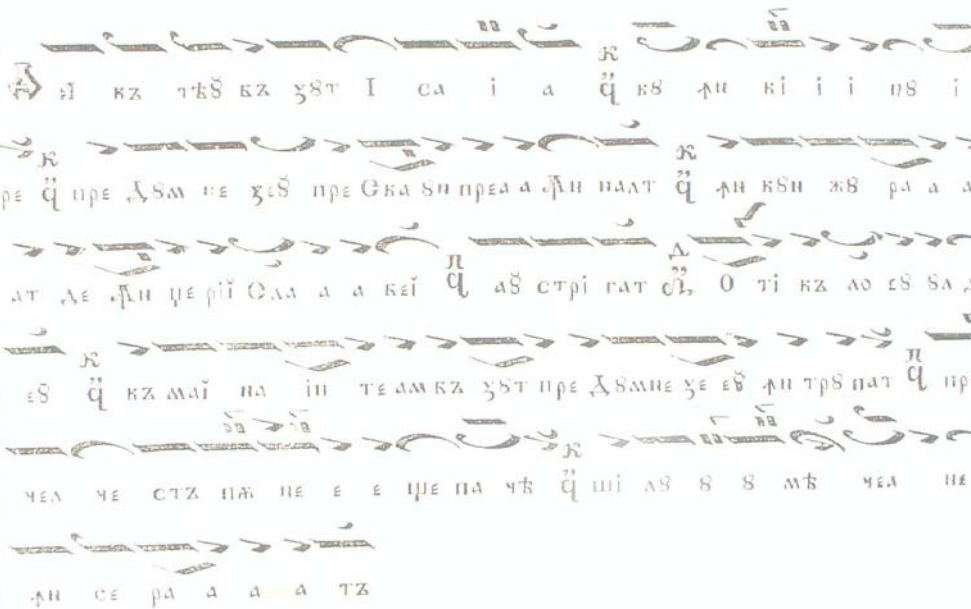 Д Я къ тѣȣ къ ꙁȣт І са і а кȣ ꙟн кі і і пȣ і
ре пре Дȣм не ꙁеȣ пре Ска ȣн преа а Ꙟн налт ꙟн кȣн жȣ ра а а
ат де Ꙟн џе рїї Сла а а веї аȣ стрі гат О ті къ ло еȣ ȣл
еȣ къ маї на ін те ам къ ꙁȣт пре Дȣмне ꙁе еȣ ꙟн трȣ пат пр
чел че стъ пѫ не е е ще па чѣ ші лȣ ȣ ȣ мѣ чел не
ꙟн се ра а а а тъ